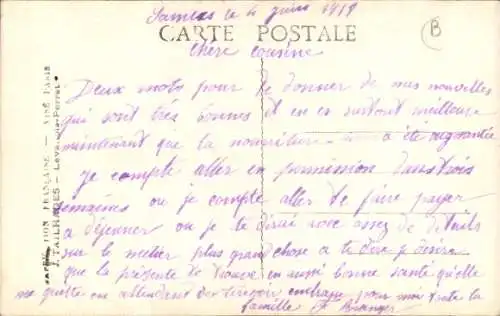 le 4 juin 1919
CARTE POSTALE
B
Chère cousine
Deux mots pour te donner de mes nouvelles
qui sont très bonnes et en surtout meilleure
maintenant que la nourriture a été augmentée
Je compte aller en permission dans trois
semaines ou je compte aller te faire payer
a déjeuner ou je te dirai avec assez de détails
sur le métier plus grand chose a te dire j'
que la présente te trouve en aussi bonne santé qu'elle
me quitte en attendant de embrasse pour moi toute la
famille
FRANÇAISE — VISÉ PARIS
J. TAILHADES — Levallois-Perret